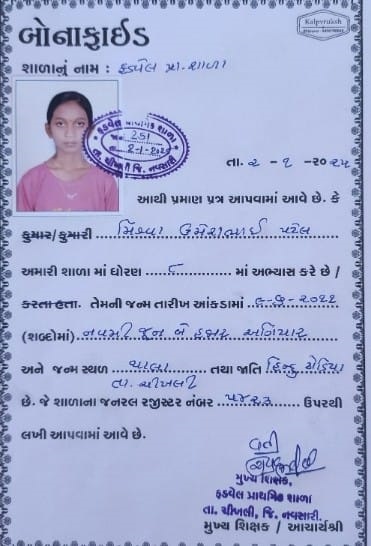 Kalpvruksh
બોનાફાઈડ
શાળાનું નામ : ફડવેલ પ્રા. શાળા
ફડવેલ પ્રાથમિક શાળા
251
2-1-2025
તા. ચીખલી જિ. નવસારી
તા. ૨ - ૧ - ૨૦૨૫
આથી પ્રમાણ પત્ર આપવામાં આવે છે. કે
કુમાર/કુમારી ઉમેશભાઈ પટેલ
અમારી શાળા માં ધોરણ ૮ માં અભ્યાસ કરે છે /
કરતા હતા. તેમની જન્મ તારીખ આંકડામાં ૯-૬-૨૦૧૧
(શબ્દોમાં) નવમી જૂન બે હજાર અગિયાર
અને જન્મ સ્થળ તથા જાતિ હિન્દુ ધોડિયા
તા. ચીખલી
છે. જે શાળાના જનરલ રજીસ્ટર નંબર ૫૪૨૩ ઉપરથી
લખી આપવામાં આવે છે.
મુખ્ય શિક્ષક,
ફડવેલ પ્રાથમિક શાળા
તા. ચીખલી, જિ. નવસારી.
મુખ્ય શિક્ષક / આચાર્યશ્રી